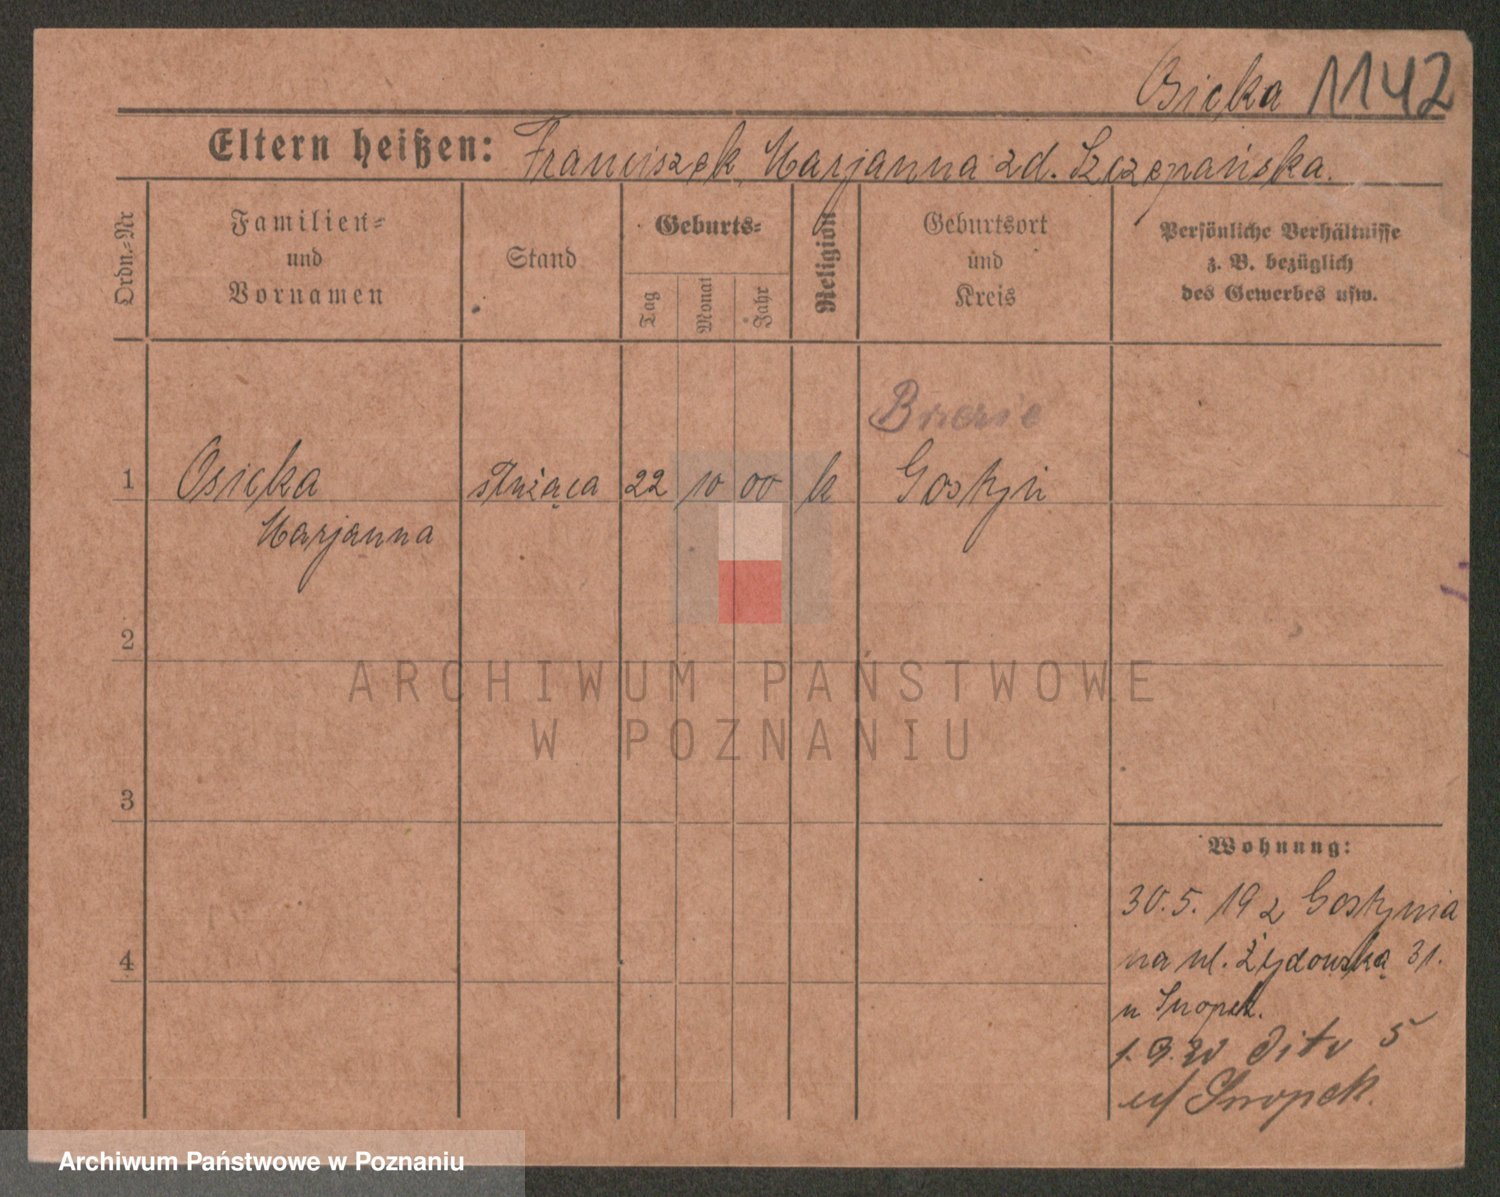 Osicka 1142
Eltern heißen: Franciszek, Marjanna zd. Szczepańska.
Ordn.-Nr
Familien-
und
Vornamen
Stand
Geburts-
Tag
Monat
Jahr
Religion
Geburtsort
und
Kreis
Persönliche Verhältnisse
z. B. bezüglich
des Gewerbes usw.
1 Osicka służąca 22 10 00 k Gostyń
Marjanna
2
3
4
Wohnung:
30.5.19 z Gostynia
na ul. Żydowską 31.
u Snopek.
1.9.20 dito 5
Snopek.
ARCHIWUM PAŃSTWOWE
W POZNANIU
Archiwum Państwowe w Poznaniu